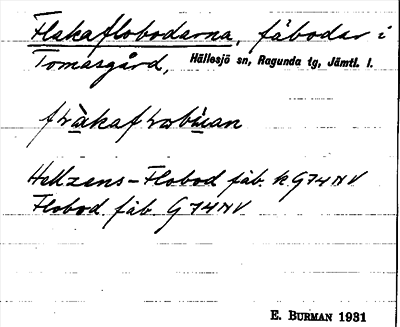 Flakaflobodarna, fäbodar i
Tomasgård, Hällesjö sn, Ragunda tg, Jämtl. l.
Hellzens-Flobod fäb. k. G74NV
Flobod fäb. G74NV
E. BURMAN 1931